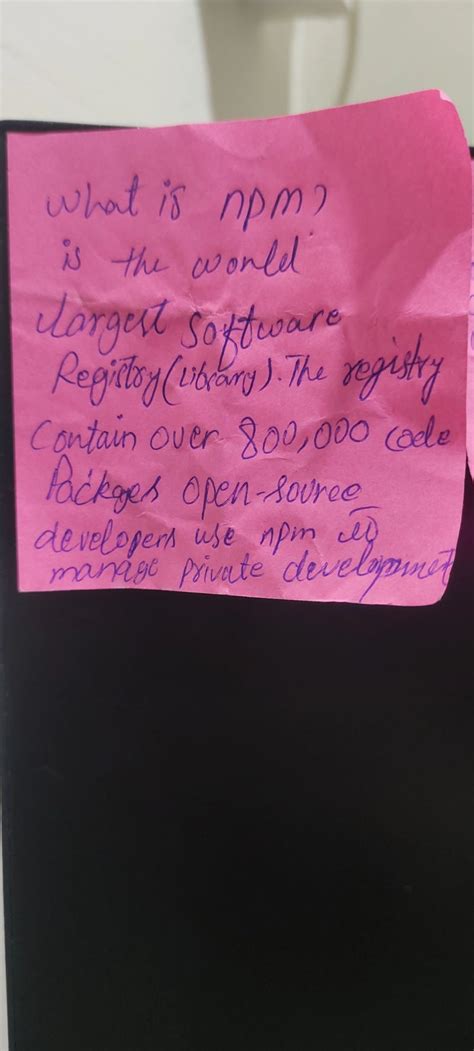 What is npm?
is the world
largest software
Registry(Library). The registry
Contain over 800,000 code
Packages open-source
developers use npm to
manage private development